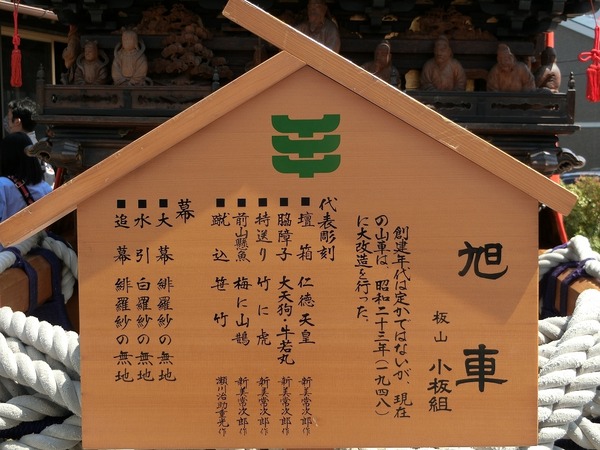 旭車
板山 小板組
創建年代は定かではないが、現在
の山車は、昭和二十三年(一九四八)
に大改造を行った。
代表彫刻
■壇箱 仁徳天皇 新美常次郎作
■脇障子 大天狗・牛若丸 新美常次郎作
■持送り 竹に虎 新美常次郎作
■前山懸魚 梅に山鵲 新美常次郎作
■蹴込 笹竹 瀬川治助重光作
幕
■大幕 緋羅紗の無地
■水引 白羅紗の無地
■追幕 緋羅紗の無地